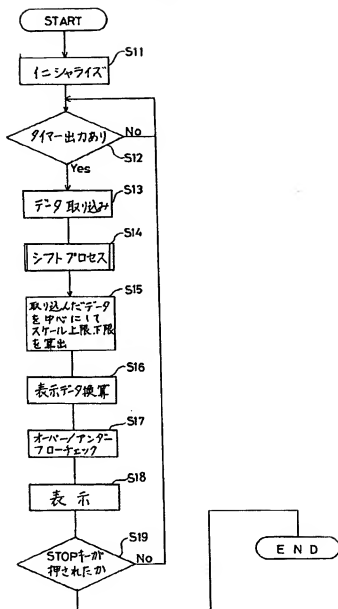 START
S11
イニシャライズ
タイマー出力あり
No
S12
Yes
S13
データ取り込み
S14
シフトプロセス
S15
取り込んだデータ
を中心にして
スケール上限、下限
を算出
S16
表示データ換算
S17
オーバー/アンダー
フローチェック
S18
表示
S19
STOPキーが
押されたか
No
END